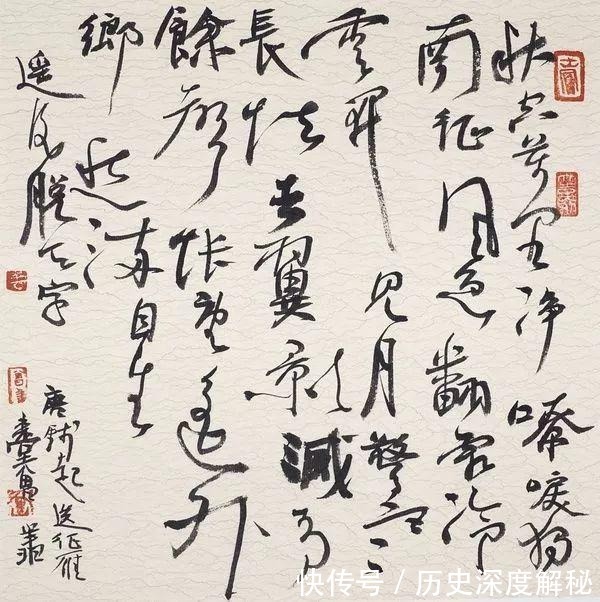 秋空萬里净嘹唳獨
南征風急翻霜冷
雲開見月驚塞
長怯去翼影滅有
餘聲悵望遙外
鄉愁滿自生
遥後脱天字
唐錢起送征雁
快传号 / 历史深度解秘